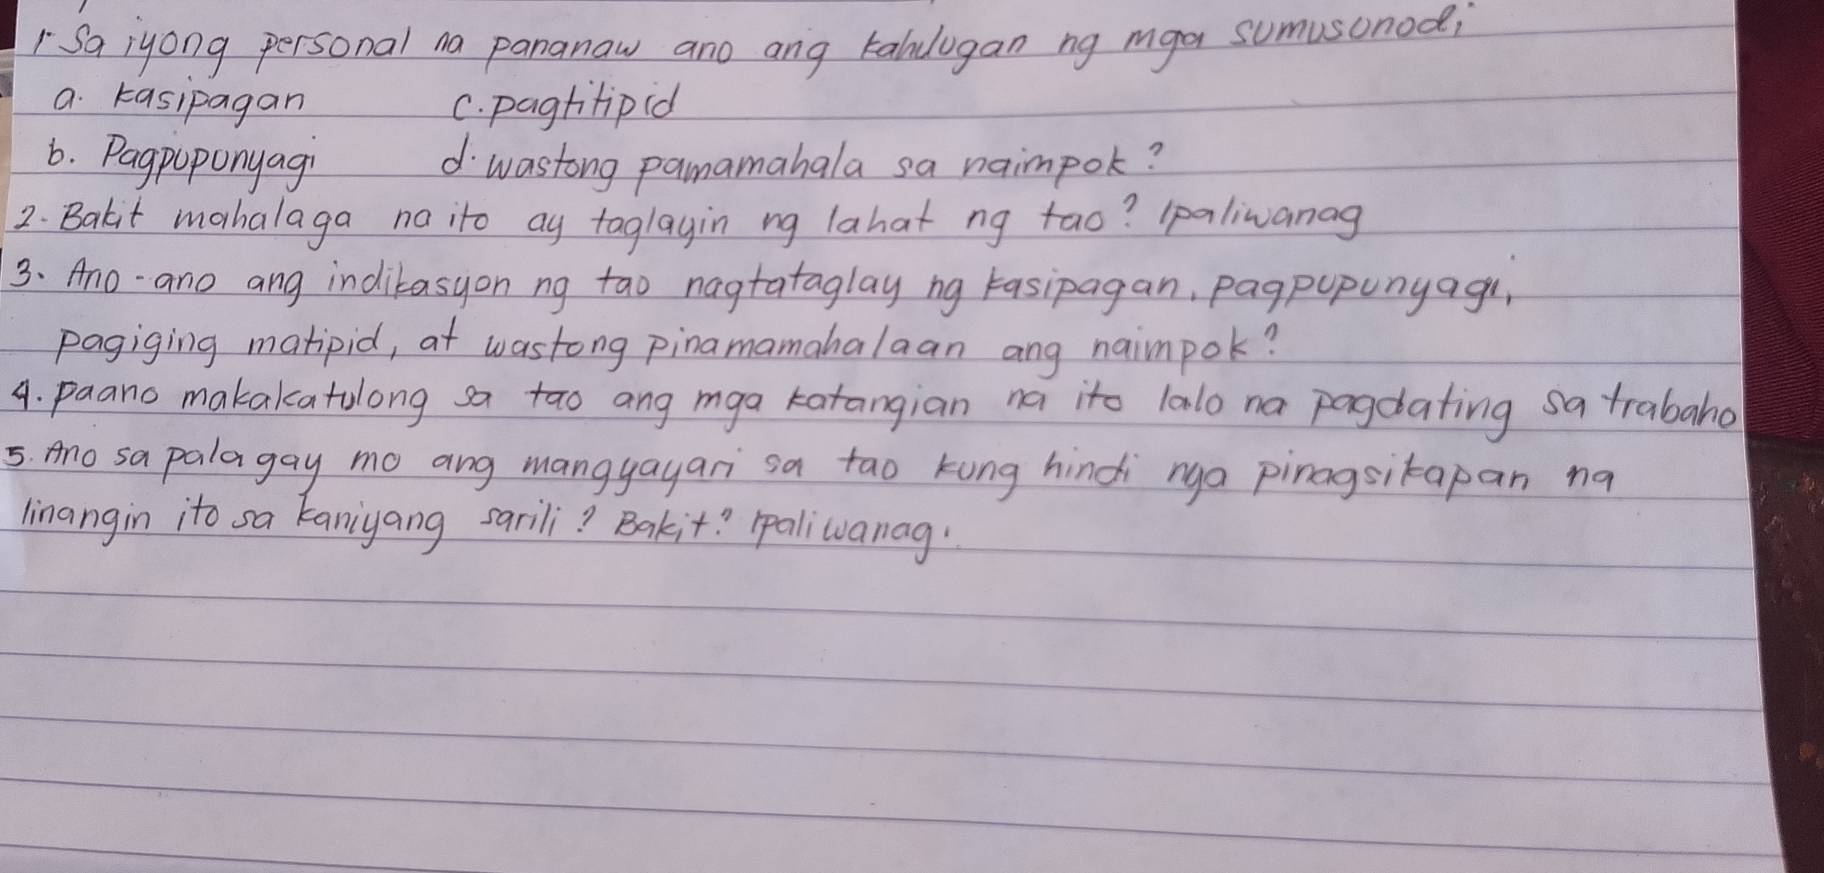 1. Sa iyong personal na pananaw ano ang kahulugan ng mga sumusonod;
a. kasipagan c. pagtitipid
b. Pagpupunyagi d. wastong pamamahala sa naimpok?
2. Bakit mahalaga na ito ay taglayin ng lahat ng tao? Ipaliwanag
3. Ano-ano ang indikasyon ng tao nagtataglay ng kasipagan, pagpupunyagi,
pagiging matipid, at wastong pinamamahalaan ang naimpok?
4. paano makakatulong sa tao ang mga katangian na ito lalo na pagdating sa trabaho
5. Ano sa palagay mo ang mangyayari sa tao kung hindi nya pinagsikapan na
linangin ito sa kaniyang sarili? Bakit? Ipaliwanag.